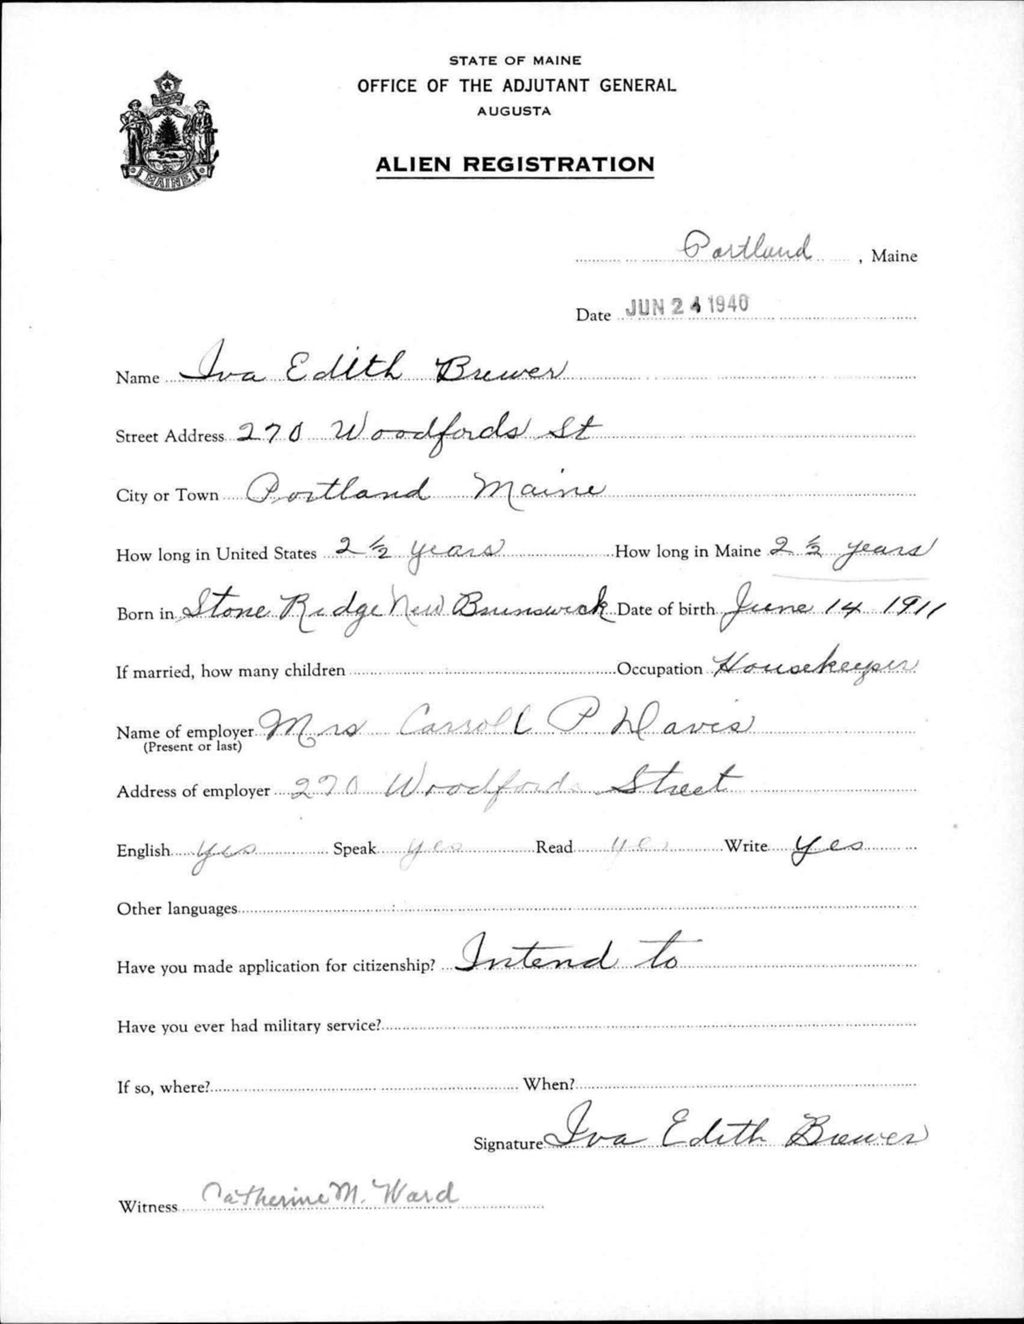 STATE OF MAINE
OFFICE OF THE ADJUTANT GENERAL
AUGUSTA
ALIEN REGISTRATION
MAINE
Portland, Maine
Date JUN 24 1940
Name Iva Edith Brewer
Street Address 270 Woodfords St
City or Town Portland Maine
How long in United States 2 1/2 years How long in Maine 2 1/2 years
Born in Stone Ridge New Brunswick Date of birth June 14 1911
If married, how many children Occupation Housekeeper
Name of employer Mrs Carroll P Davis
(Present or last)
Address of employer 270 Woodfords Street
English yes Speak yes Read yes Write yes
Other languages
Have you made application for citizenship? Intend to
Have you ever had military service?
If so, where? When?
Signature Iva Edith Brewer
Witness Catherine M. Ward